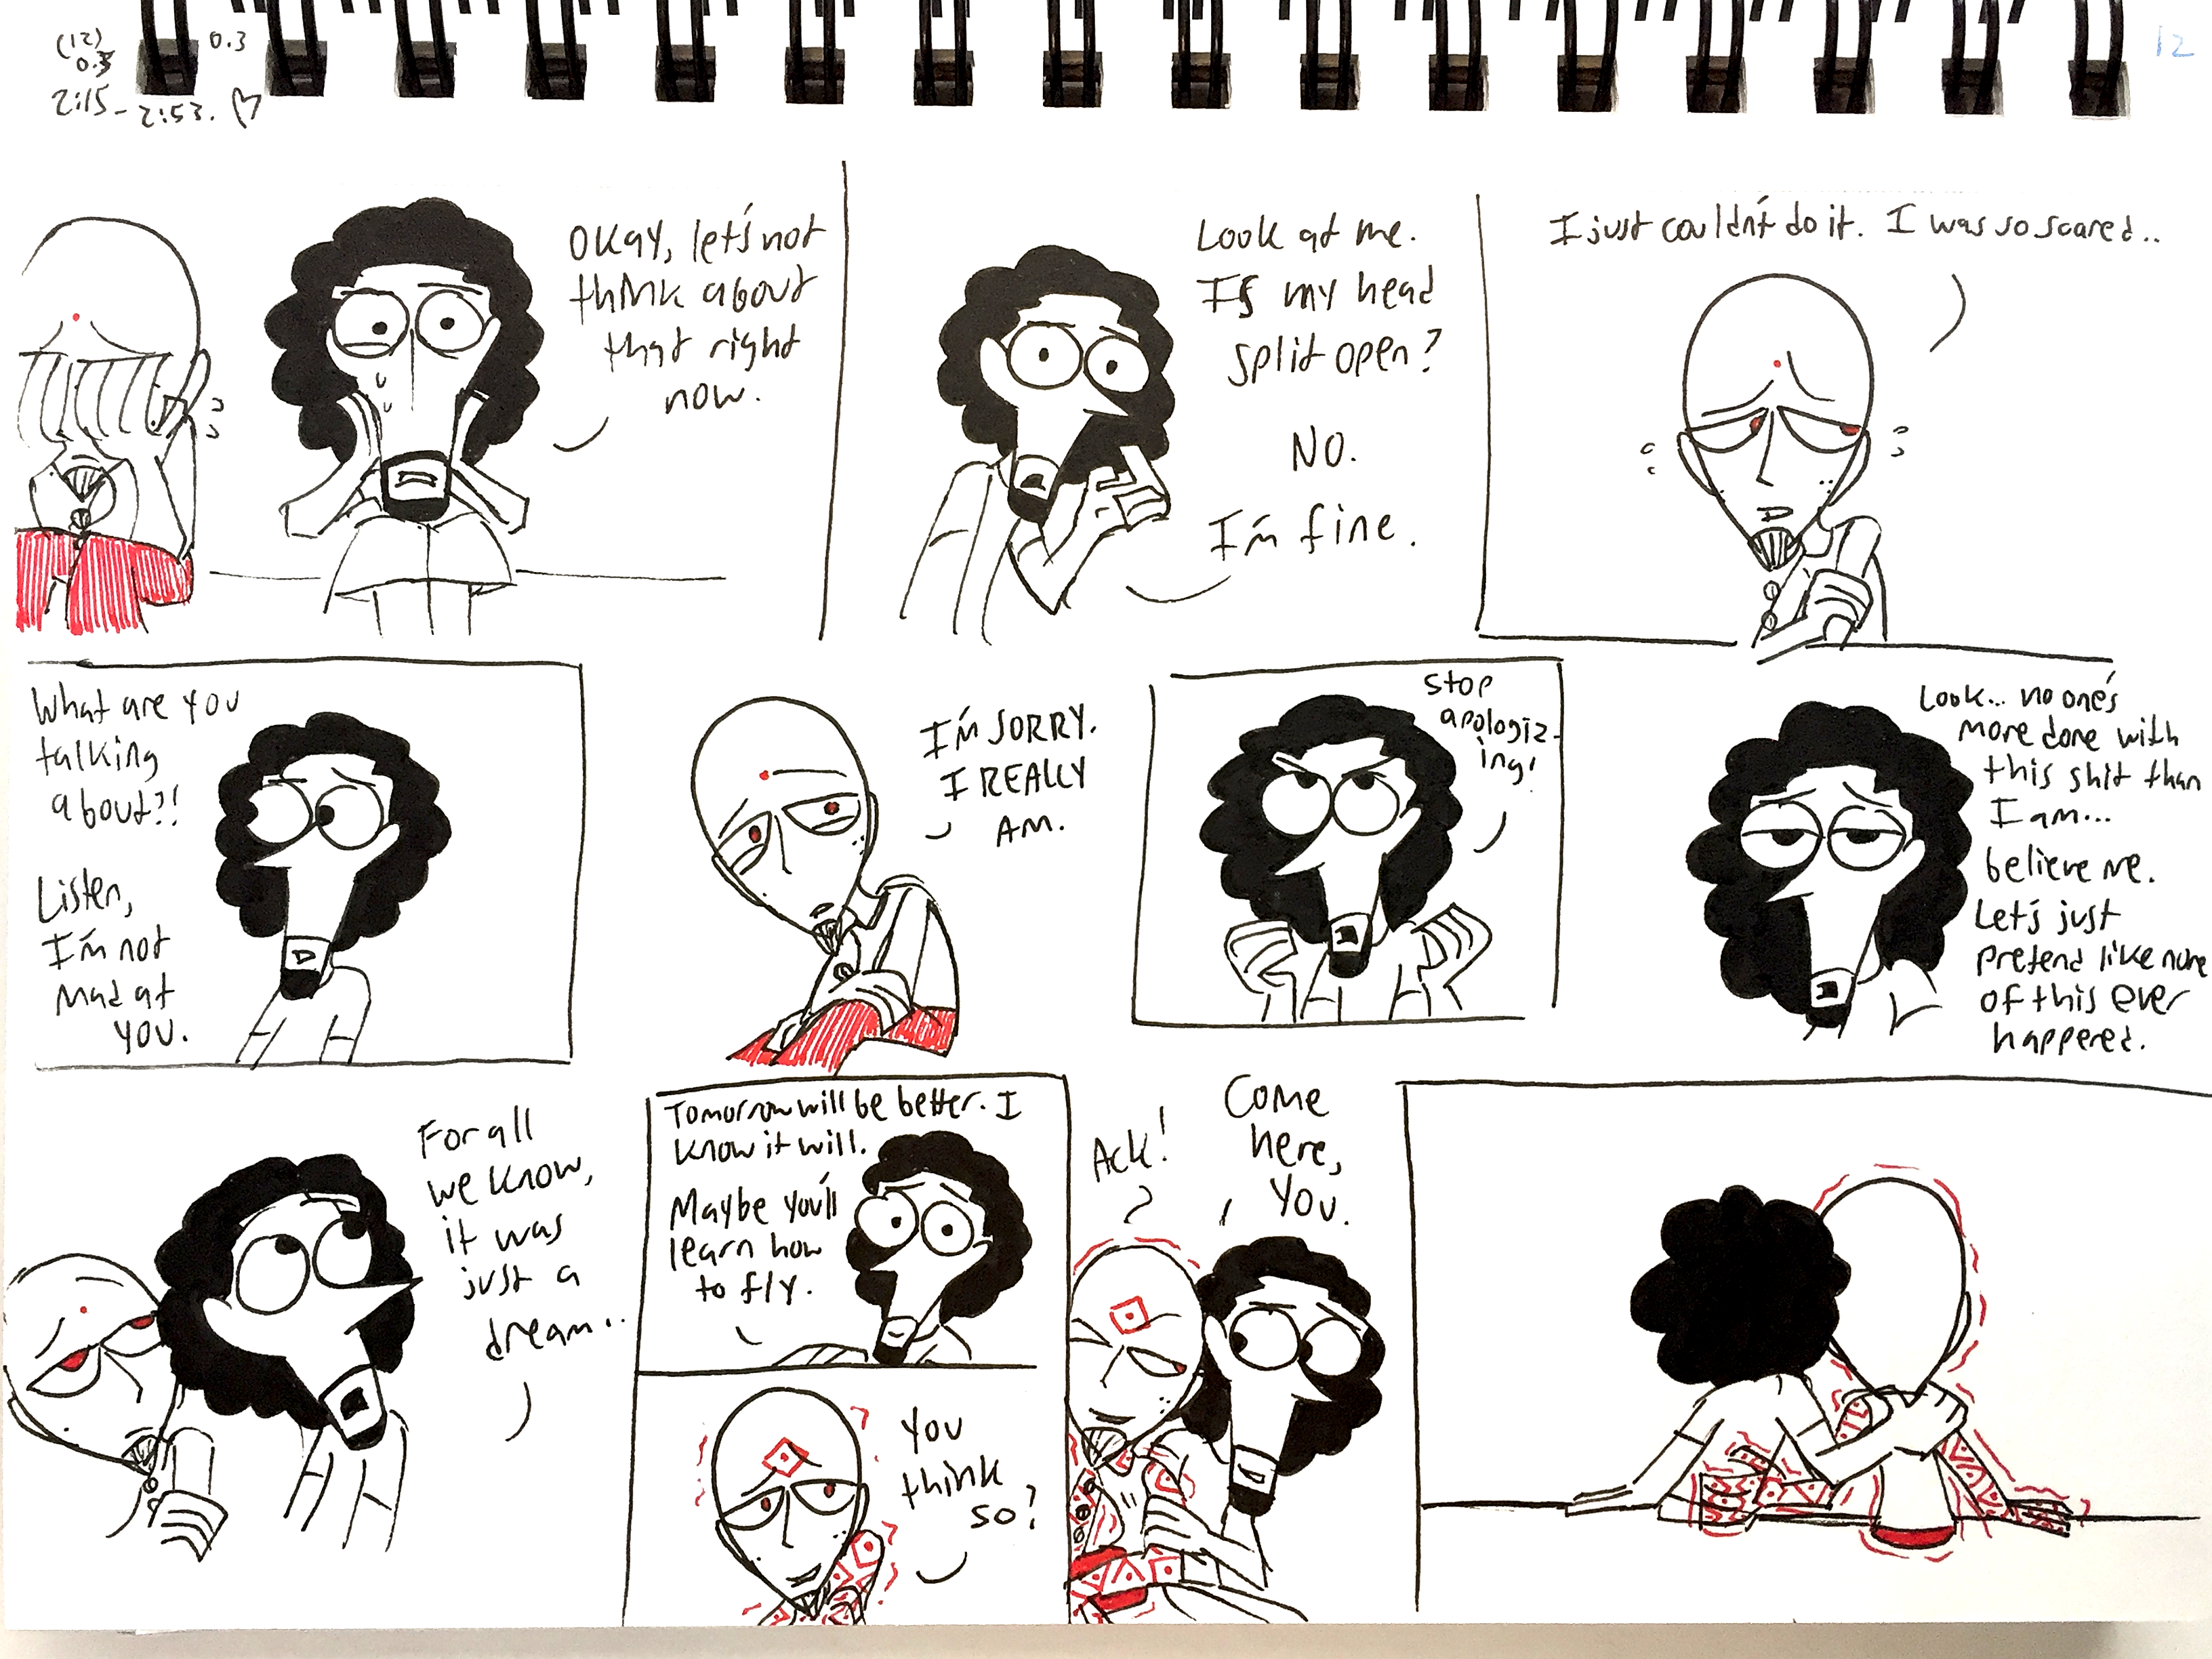 (12)
0.3
0.3
2:15 - 2:53. ♡
12
Okay, let's not
think about
that right
now.
Look at me.
Is my head
split open?
NO.
I'm fine.
I just couldn't do it. I was so scared..
What are you
talking
about?!
Listen,
I'm not
mad at
you.
I'M SORRY.
I REALLY
AM.
Stop
apologiz-
ing!
Look... no one's
more done with
this shit than
I am...
believe me.
Let's just
pretend like none
of this ever
happened.
For all
we know,
it was
just a
dream..
Tomorrow will be better. I
know it will.
Maybe you'll
learn how
to fly.
You
think
so?
Ack!
Come
here,
you.